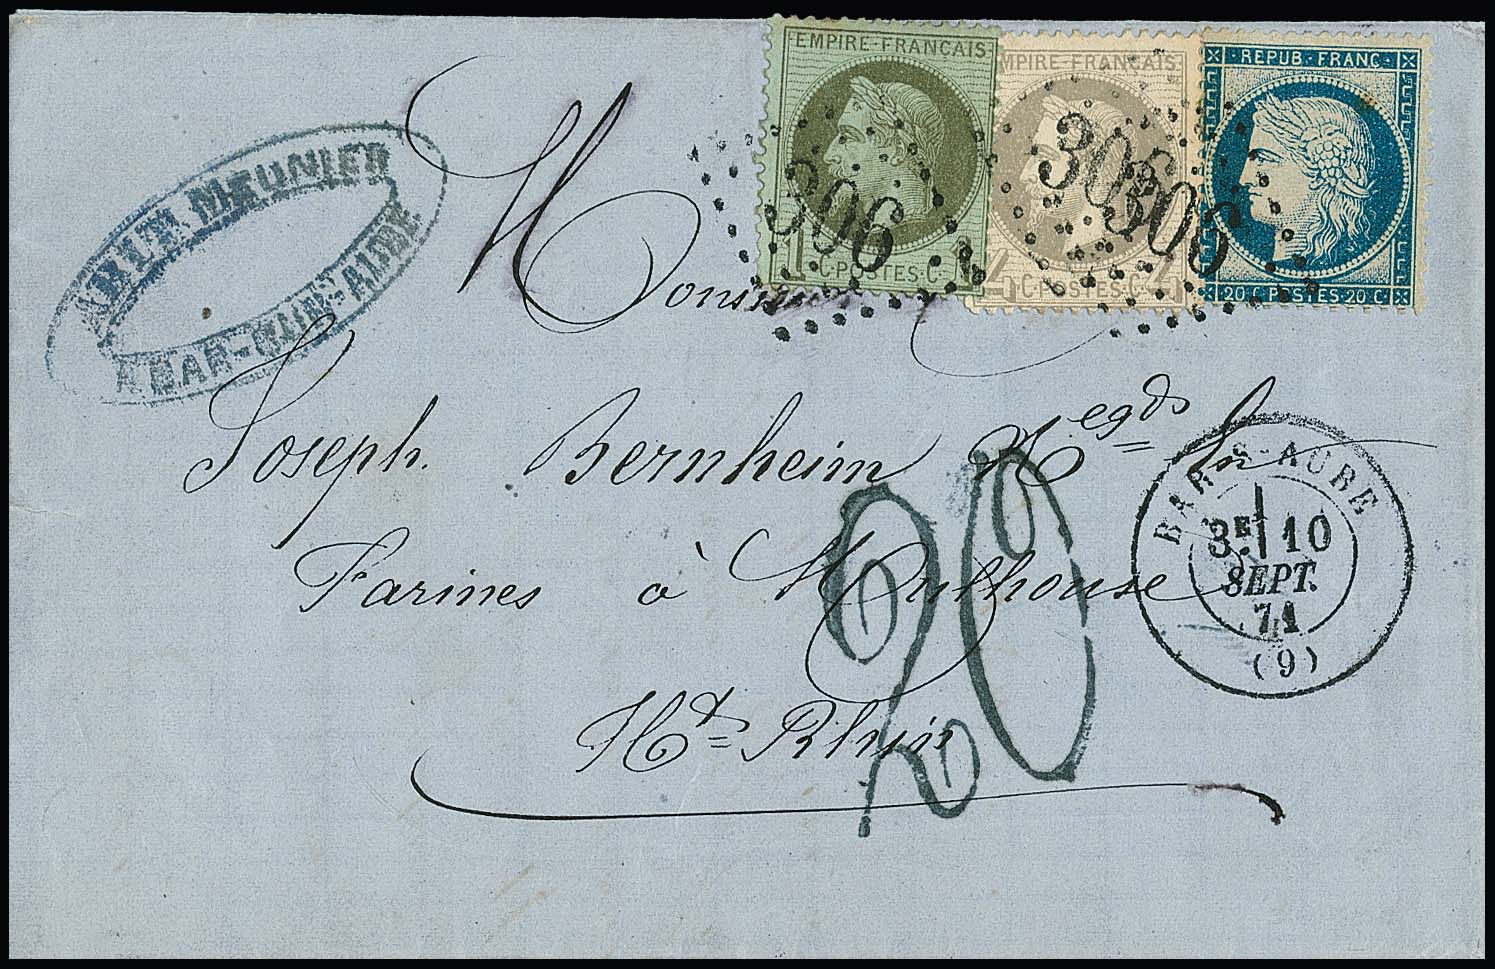 EMPIRE-FRANÇAIS
1 C·POSTES·C 1
EMPIRE-FRANÇAIS
4 C·POSTES·C 4
REPUB·FRANC·
20 C·POSTES·20 C·
306
306
306
MEUNIER
A BAR-SUR-AUBE
Monsieur
Joseph Bernheim Negds En
Farines à Mulhouse
Ht Rhin
20
BAR-S-AUBE
3E 10
SEPT.
71
(9)